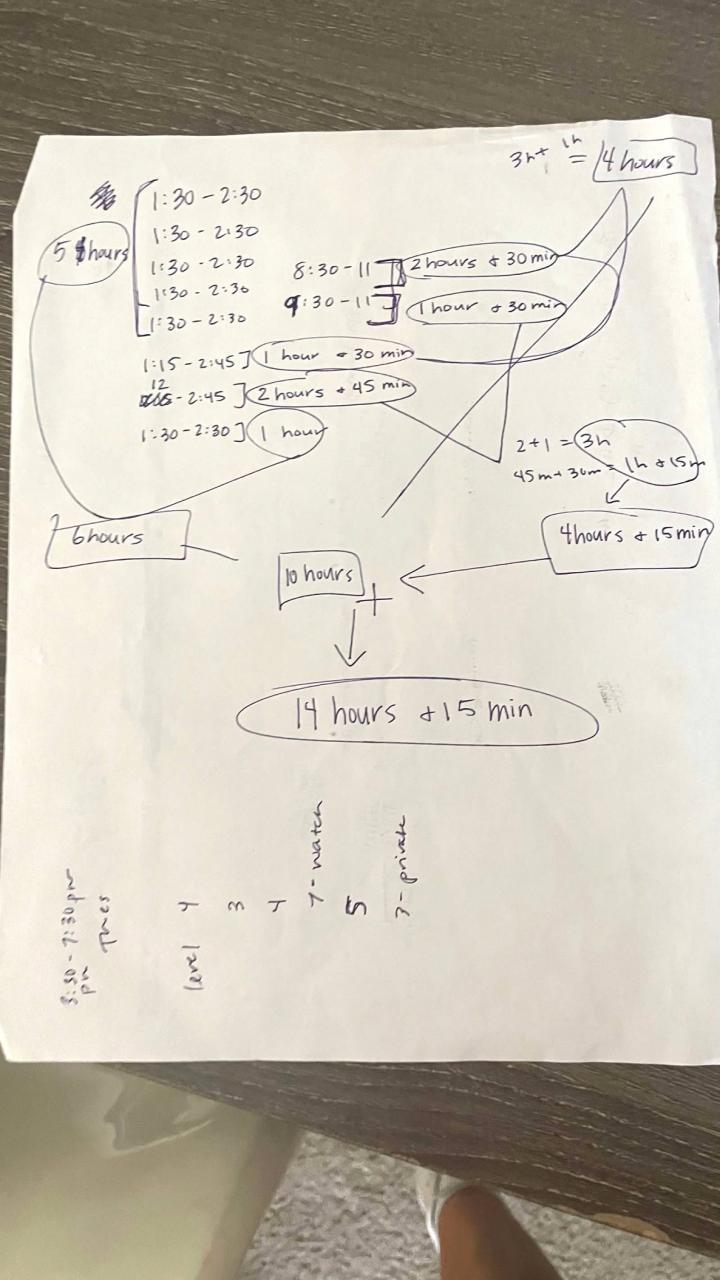 3h + 1h = 4 hours
1:30 - 2:30
1:30 - 2:30
5 hours
1:30 - 2:30
1:30 - 2:30
1:30 - 2:30
8:30 - 11 ] 2 hours + 30 min
9:30 - 11 ] 1 hour + 30 min
1:15 - 2:45 ] 1 hour + 30 min
12 - 2:45 ] 2 hours + 45 min
1:30 - 2:30 ] 1 hour
2 + 1 = 3h
45m + 30m = 1h + 15m
6 hours
4 hours + 15 min
10 hours
+
14 hours + 15 min
3:30 - 7:30 pm
pm Tues
level 4
3
4
7 - watch
5
7 - private